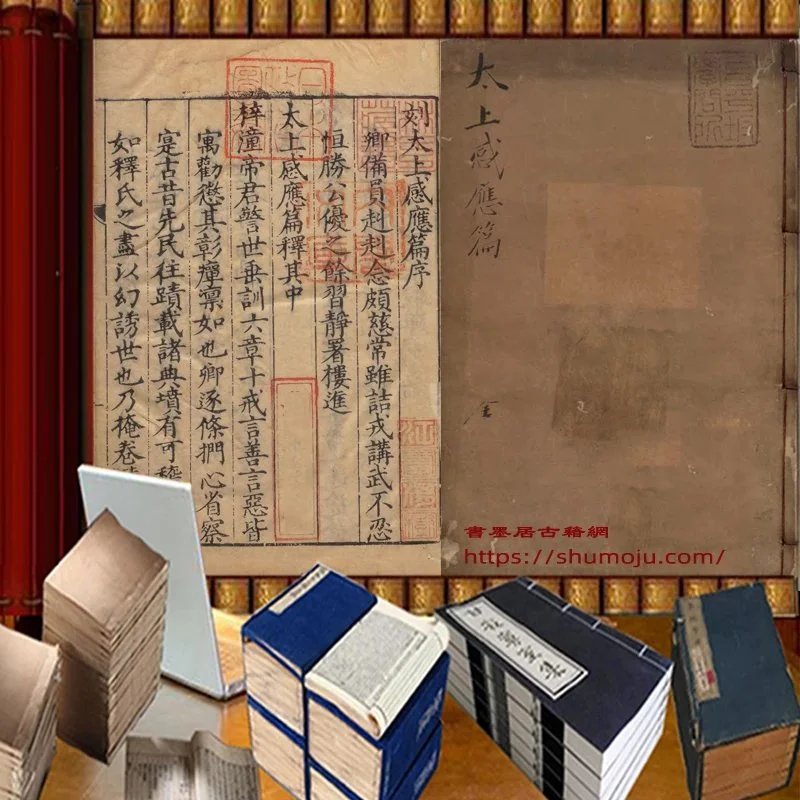 刻太上感應篇序
卿備員赳赳念頗慈常雖詰戎講武不忍
恒勝公優之餘習靜署樓進
太上感應篇釋其中
梓潼帝君警世垂訓六章十戒言善言惡皆
寓勸懲其彰癉稟如也卿逐條捫心省察
寔古昔先民往蹟載諸典墳有可稽
如釋氏之盡以幻誘世也乃掩卷
太上感應篇
全
書墨居古籍網
https://shumoju.com/